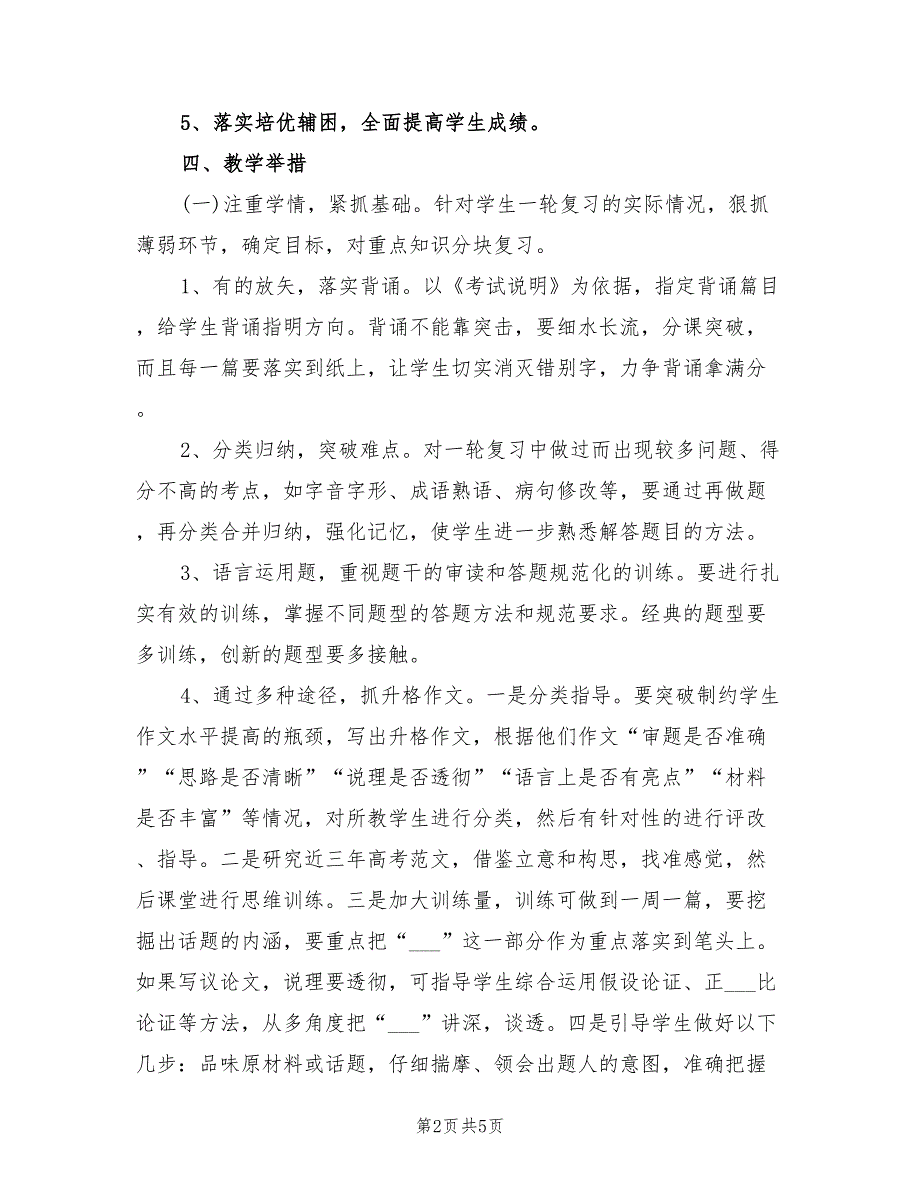 5、落实培优辅困，全面提高学生成绩。
四、教学举措
(一)注重学情，紧抓基础。针对学生一轮复习的实际情况，狠抓
薄弱环节，确定目标，对重点知识分块复习。
1、有的放矢，落实背诵。以《考试说明》为依据，指定背诵篇目
，给学生背诵指明方向。背诵不能靠突击，要细水长流，分课突破，
而且每一篇要落实到纸上，让学生切实消灭错别字，力争背诵拿满分
。
2、分类归纳，突破难点。对一轮复习中做过而出现较多问题、得
分不高的考点，如字音字形、成语熟语、病句修改等，要通过再做题
，再分类合并归纳，强化记忆，使学生进一步熟悉解答题目的方法。
3、语言运用题，重视题干的审读和答题规范化的训练。要进行扎
实有效的训练，掌握不同题型的答题方法和规范要求。经典的题型要
多训练，创新的题型要多接触。
4、通过多种途径，抓升格作文。一是分类指导。要突破制约学生
作文水平提高的瓶颈，写出升格作文，根据他们作文“审题是否准确
”“思路是否清晰”“说理是否透彻”“语言上是否有亮点”“材料
是否丰富”等情况，对所教学生进行分类，然后有针对性的进行评改
、指导。二是研究近三年高考范文，借鉴立意和构思，找准感觉，然
后课堂进行思维训练。三是加大训练量，训练可做到一周一篇，要挖
掘出话题的内涵，要重点把“___”这一部分作为重点落实到笔头上。
如果写议论文，说理要透彻，可指导学生综合运用假设论证、正___比
论证等方法，从多角度把“___”讲深，谈透。四是引导学生做好以下
几步：品味原材料或话题，仔细揣摩、领会出题人的意图，准确把握
第2页共5页